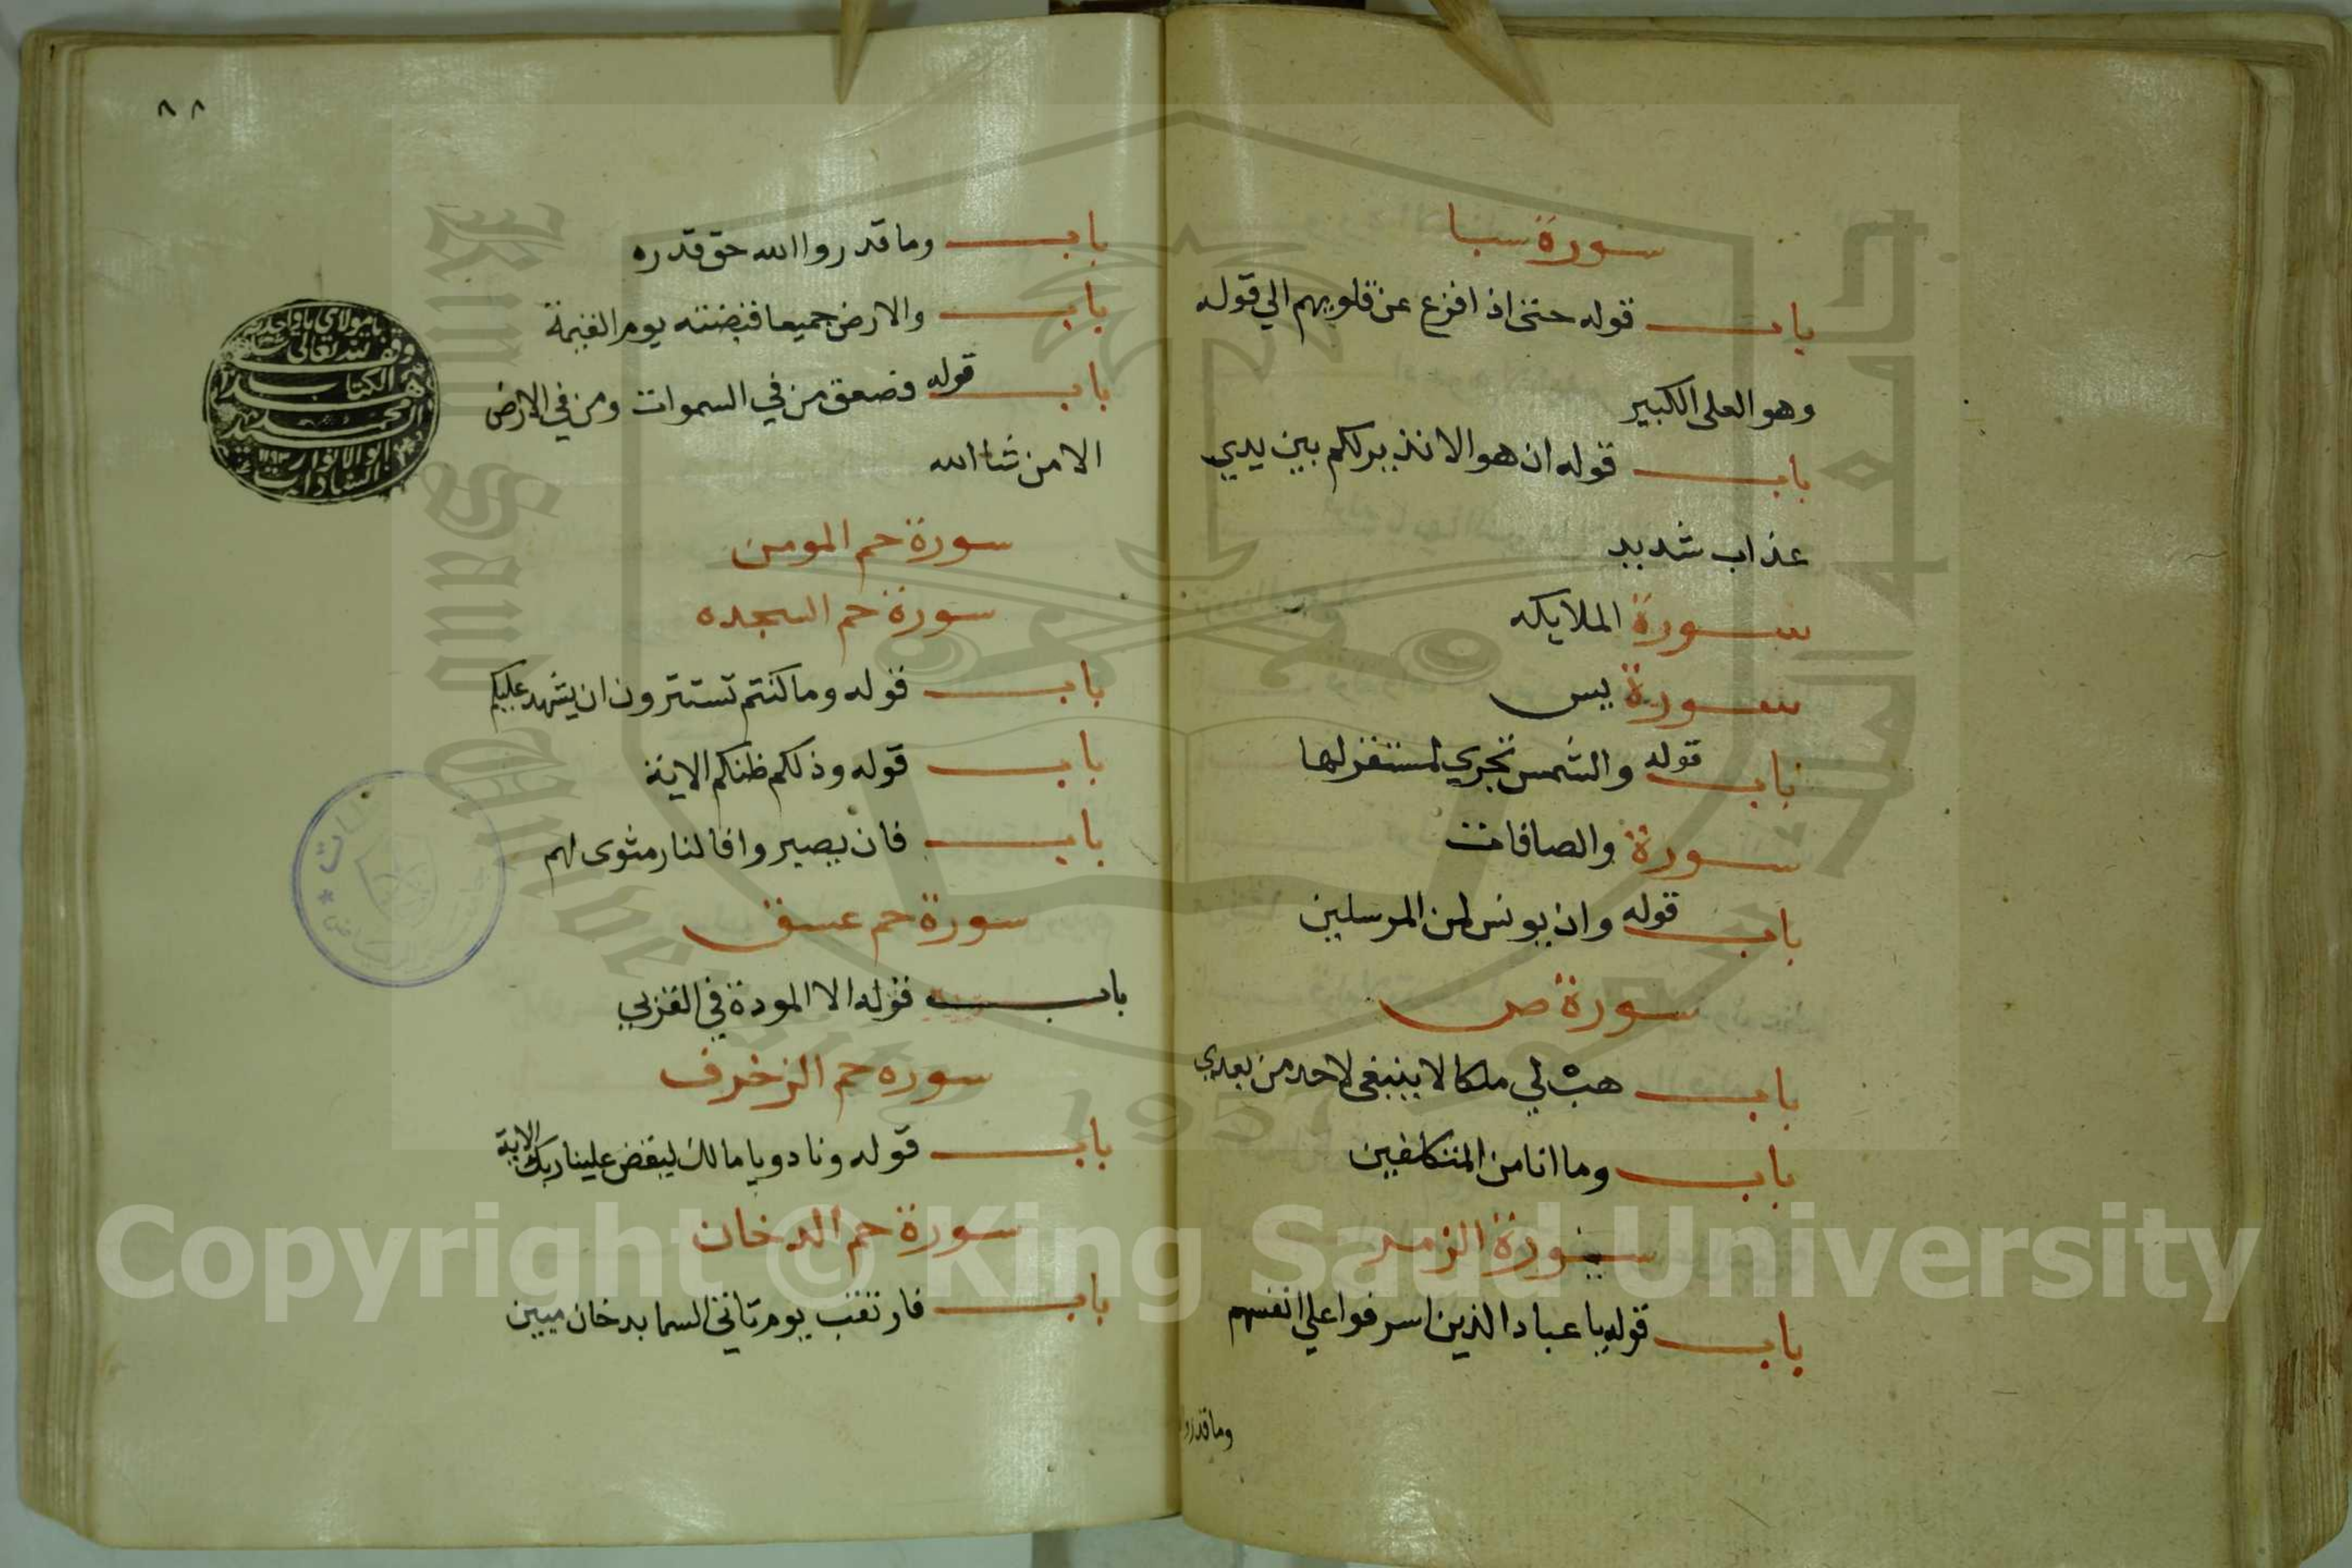 سورة سبا
باب قوله حتى اذا فزع عن قلوبهم الي قوله
وهو العلى الكبير
باب قوله ان هو الا نذير لكم بين يدي
عذاب شديد
سورة الملايكه
سورة يس
باب قوله والشمس تجري لمستقر لها
سورة والصافات
باب قوله وان يونس لمن المرسلين
سورة ص
باب هب لي ملكا لا ينبغى لاحد من بعدي
باب وما انا من المتكلفين
سورة الزمر
باب قوله يا عباد الذين اسرفوا علي انفسهم
وما قدروا
٨٨
باب وما قدروا الله حق قدره
باب والارض جميعا قبضته يوم القيمة
باب قوله فصعق من في السموات ومن في الارض
الا من شا الله
سورة حم المومن
سورة حم السجده
باب قوله وما كنتم تستترون ان يشهد عليكم
باب قوله وذلكم ظنكم الاية
باب فان يصيروا فالنار مثوى لهم
سورة حم عسق
باب قوله الا المودة في القربي
سوره حم الزخرف
باب قوله ونادو يا مالك ليقض علينا ربك الاية
سورة حم الدخان
باب فارتقب يوم تاتي السما بدخان مبين
يا مولاي يا واحد
وقف لله تعالى
هذا الكتاب
محمد
ابو الانوار
السادات
King Saud University
1957
Copyright © King Saud University